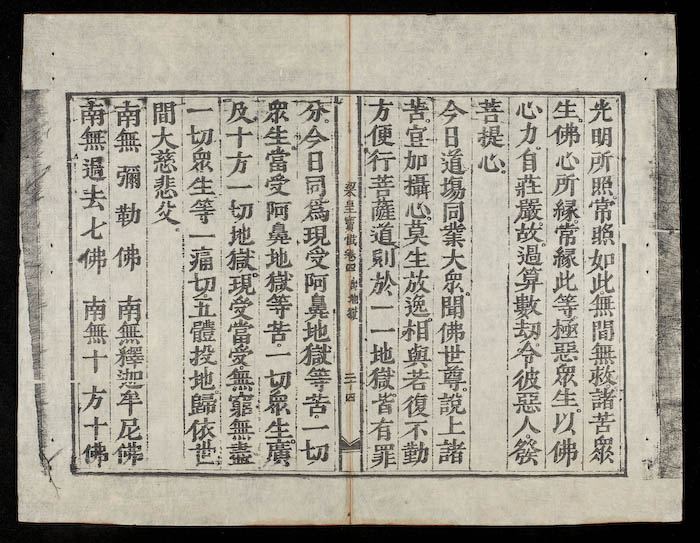 光明所照。常照如此無間無救諸苦衆
生。佛心所縁。常縁此等極惡衆生。以佛
心力。自莊嚴故。過算數劫。令彼惡人。發
菩提心。
今日道塲同業大衆。聞佛世尊。說上諸
苦。宜加攝心。莫生放逸。相與若復不勤
方便。行菩薩道。則於一一地獄。皆有罪
梁皇寶懺卷四 地獄 二十四
分。今日同爲現受阿鼻地獄等苦。一切
衆生當受阿鼻地獄等苦。一切衆生。廣
及十方一切地獄。現受當受。無窮無盡
一切衆生等一痛切。五體投地歸依世
間大慈悲父。
南無彌勒佛 南無釋迦牟尼佛
南無過去七佛 南無十方十佛